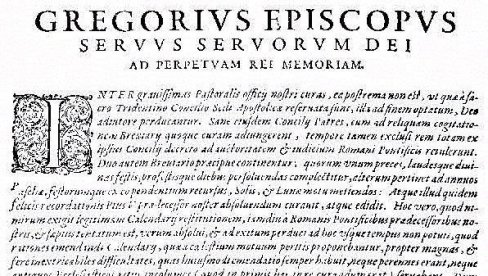 GREGORIVS EPISCOPVS
SERVVS SERVORVM DEI
AD PERPETVAM REI MEMORIAM.
INTER grauissimas Pastoralis officij nostri curas, ea postrema non est, vt quæ à sa-
cro Tridentino Concilio Sedi Apostolicæ reseruata sunt, illa ad finem optatum, Deo
adiutore perducantur. Sane eiusdem Concilij Patres, cum ad reliquam cogitatio-
nem Breuiarij quoque curam adiungerent, tempore tamen exclusi rem totam ex
ipsius Concilij decreto ad auctoritatem & iudicium Romani Pontificis retulerunt.
Duo autem Breuiario præcipue continentur, quorum vnum preces, laudesque diui-
nas festis, profestisque diebus persoluendas complectitur, alterum pertinet ad annuos
Paschæ, festorumque ex eo pendentium recursus, Solis, & Lunæ motu metiendos. Atque illud quidem
felicis recordationis Pius V. prædecessor noster absoluendum curauit, atque edidit. Hoc vero, quod ni-
mirum exigit legitimam Calendarij restitutionem, iamdiu à Romanis Pontificibus prædecessoribus no-
stris, & sæpius tentatum est, verum absolui, & ad exitum perduci ad hoc vsque tempus non potuit, quod
rationes emendandi Calendarij, quæ a cælestium motuum peritis proponebantur, propter magnas, & fe-
re inextricabiles difficultates, quas huiusmodi emendatio semper habuit, neque perennes erant, neque
antiquos Ecclesiasticos ritus incolumes ( quod in primis hac in re curandum erat ) seruabant.